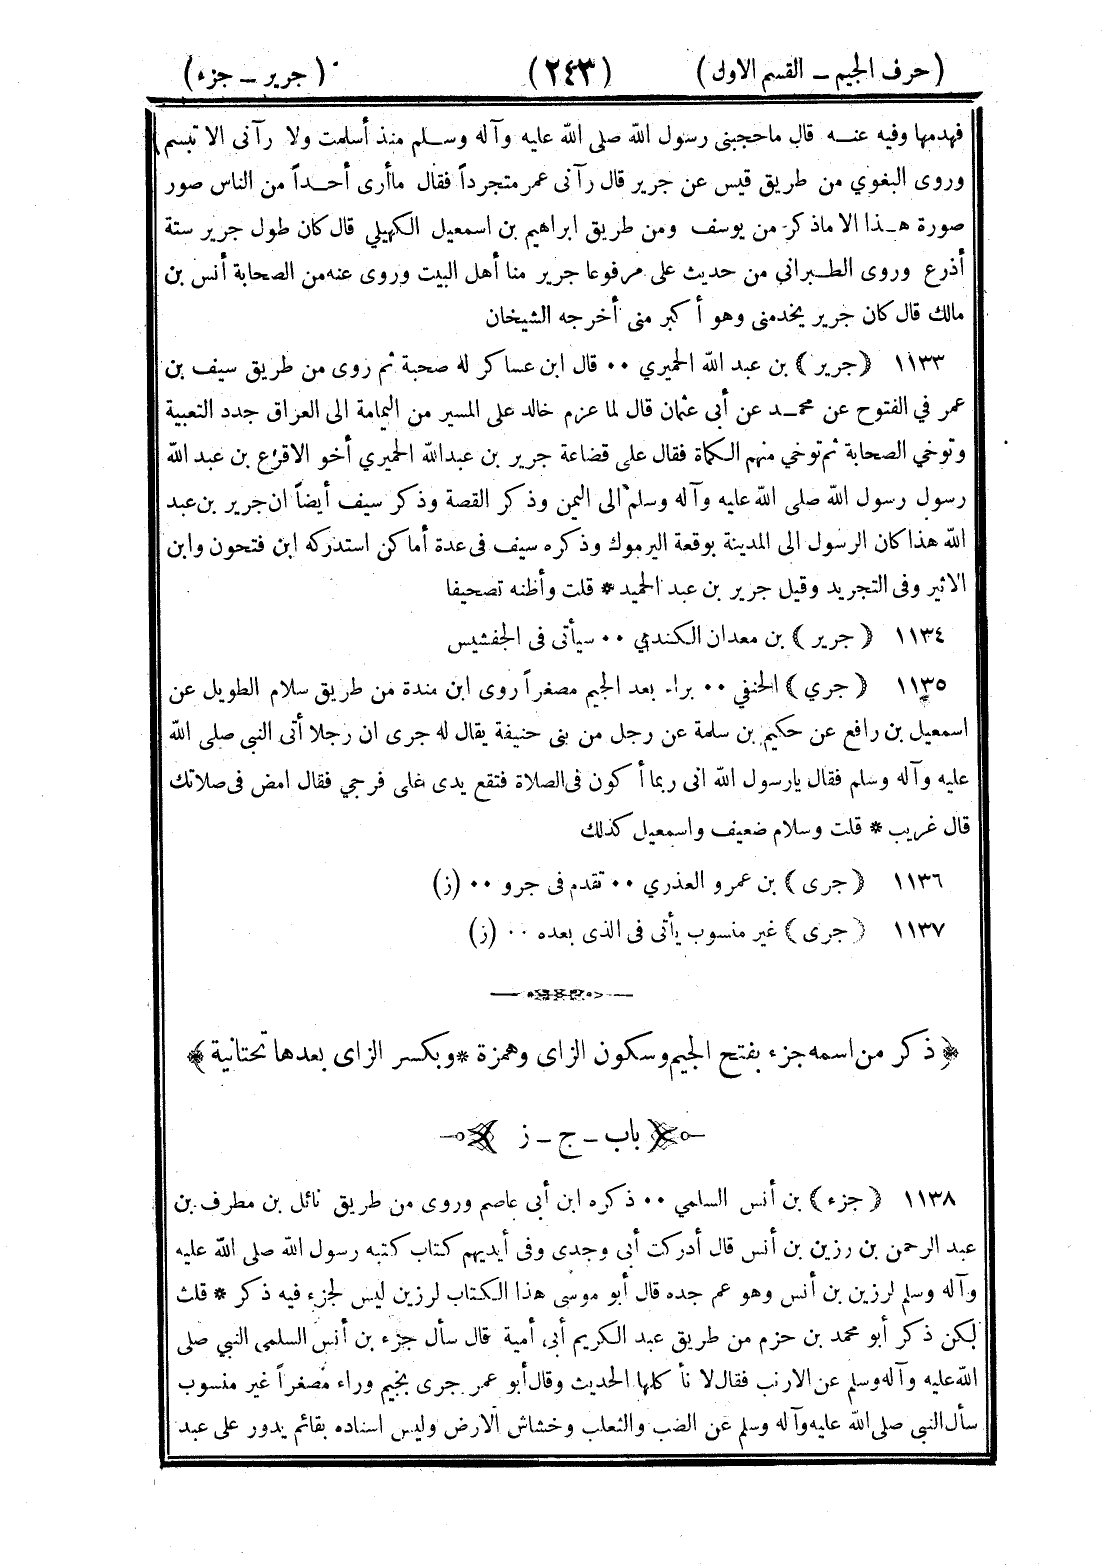 (حرف الجيم ــ القسم الاول) (٢٤٣) (جرير ــ جزء)
فهدمها وفيه عنه قال ماحجبنى رسول الله صلى الله عليه وآله وسلم منذ أسلمت ولا رآنى الا تبسم
وروى البغوي من طريق قيس عن جرير قال رآنى عمر متجرداً فقال ماأرى أحداً من الناس صور
صورة هذا الا ماذكر من يوسف ومن طريق ابراهيم بن اسمعيل الكهيلي قال كان طول جرير ستة
أذرع وروى الطبراني من حديث على مرفوعا جرير منا أهل البيت وروى عنه من الصحابة أنس بن
مالك قال كان جرير يخدمنى وهو أكبر منى أخرجه الشيخان
١١٣٣ (جرير) بن عبد الله الحميري ٠٠ قال ابن عساكر له صحبة ثم روى من طريق سيف بن
عمر في الفتوح عن محمد عن أبى عثمان قال لما عزم خالد على المسير من اليمامة الى العراق جدد التعبية
وتوخي الصحابة ثم توخي منهم الكماة فقال على قضاعة جرير بن عبدالله الحميري أخو الاقرع بن عبد الله
رسول رسول الله صلى الله عليه وآله وسلم الى اليمن وذكر القصة وذكر سيف أيضاً ان جرير بن عبد
الله هذا كان الرسول الى المدينة بوقعة اليرموك وذكره سيف فى عدة أماكن استدركه ابن فتحون وابن
الاثير وفى التجريد وقيل جرير بن عبد الحميد * قلت وأظنه تصحيفا
١١٣٤ (جرير) بن معدان الكندي ٠٠ سيأتى فى الجفشيس
١١٣٥ (جري) الحنفي ٠٠ براء بعد الجيم مصغراً روى ابن مندة من طريق سلام الطويل عن
اسمعيل بن رافع عن حكيم بن سلمة عن رجل من بنى حنيفة يقال له جرى ان رجلا أتى النبي صلى الله
عليه وآله وسلم فقال يارسول الله انى ربما أكون فى الصلاة فتقع يدى على فرجي فقال امض فى صلاتك
قال غريب * قلت وسلام ضعيف واسمعيل كذلك
١١٣٦ (جرى) بن عمرو العذري ٠٠ تقدم فى جرو ٠٠ (ز)
١١٣٧ (جرى) غير منسوب يأتى فى الذى بعده ٠٠ (ز)
﴿ ذكر من اسمه جزء بفتح الجيم وسكون الزاى وهمزة * وبكسر الزاى بعدها تحتانية ﴾
باب ــ ج ــ ز
١١٣٨ (جزء) بن أنس السلمي ٠٠ ذكره ابن أبى عاصم وروى من طريق نائل بن مطرف بن
عبد الرحمن بن رزين بن أنس قال أدركت أبى وجدى وفى أيديهم كتاب كتبه رسول الله صلى الله عليه
وآله وسلم لرزين بن أنس وهو عم جده قال أبو موسى هذا الكتاب لرزين ليس لجزء فيه ذكر * قلت
لكن ذكر أبو محمد بن حزم من طريق عبد الكريم أبى أمية قال سأل جزء بن أنس السلمى النبي صلى
الله عليه وآله وسلم عن الارنب فقال لا نأكلها الحديث وقال أبو عمر جرى بجيم وراء مصغراً غير منسوب
سأل النبي صلى الله عليه وآله وسلم عن الضب والثعلب وخشاش الارض وليس اسناده بقائم يدور على عبد